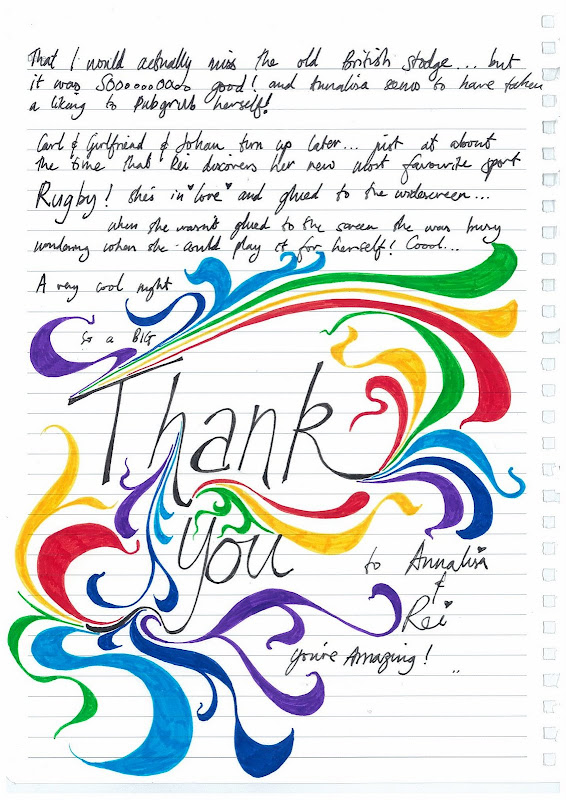 That I would actually miss the old British stodge... but
it was Soooooooooo good! and Annalisa seems to have taken
a liking to Pubgrub herself!
Carl & Girlfriend & Johan turn up later... just at about
the time that Rei discovers her new most favourite sport
Rugby! she's in love and glued to the widescreen...
when she wasn't glued to the screen she was busy
wondering when she could play it for herself! Coool...
A very cool night
So a BIG
Thank
you
to Annalisa
&
Rei
You're Amazing!